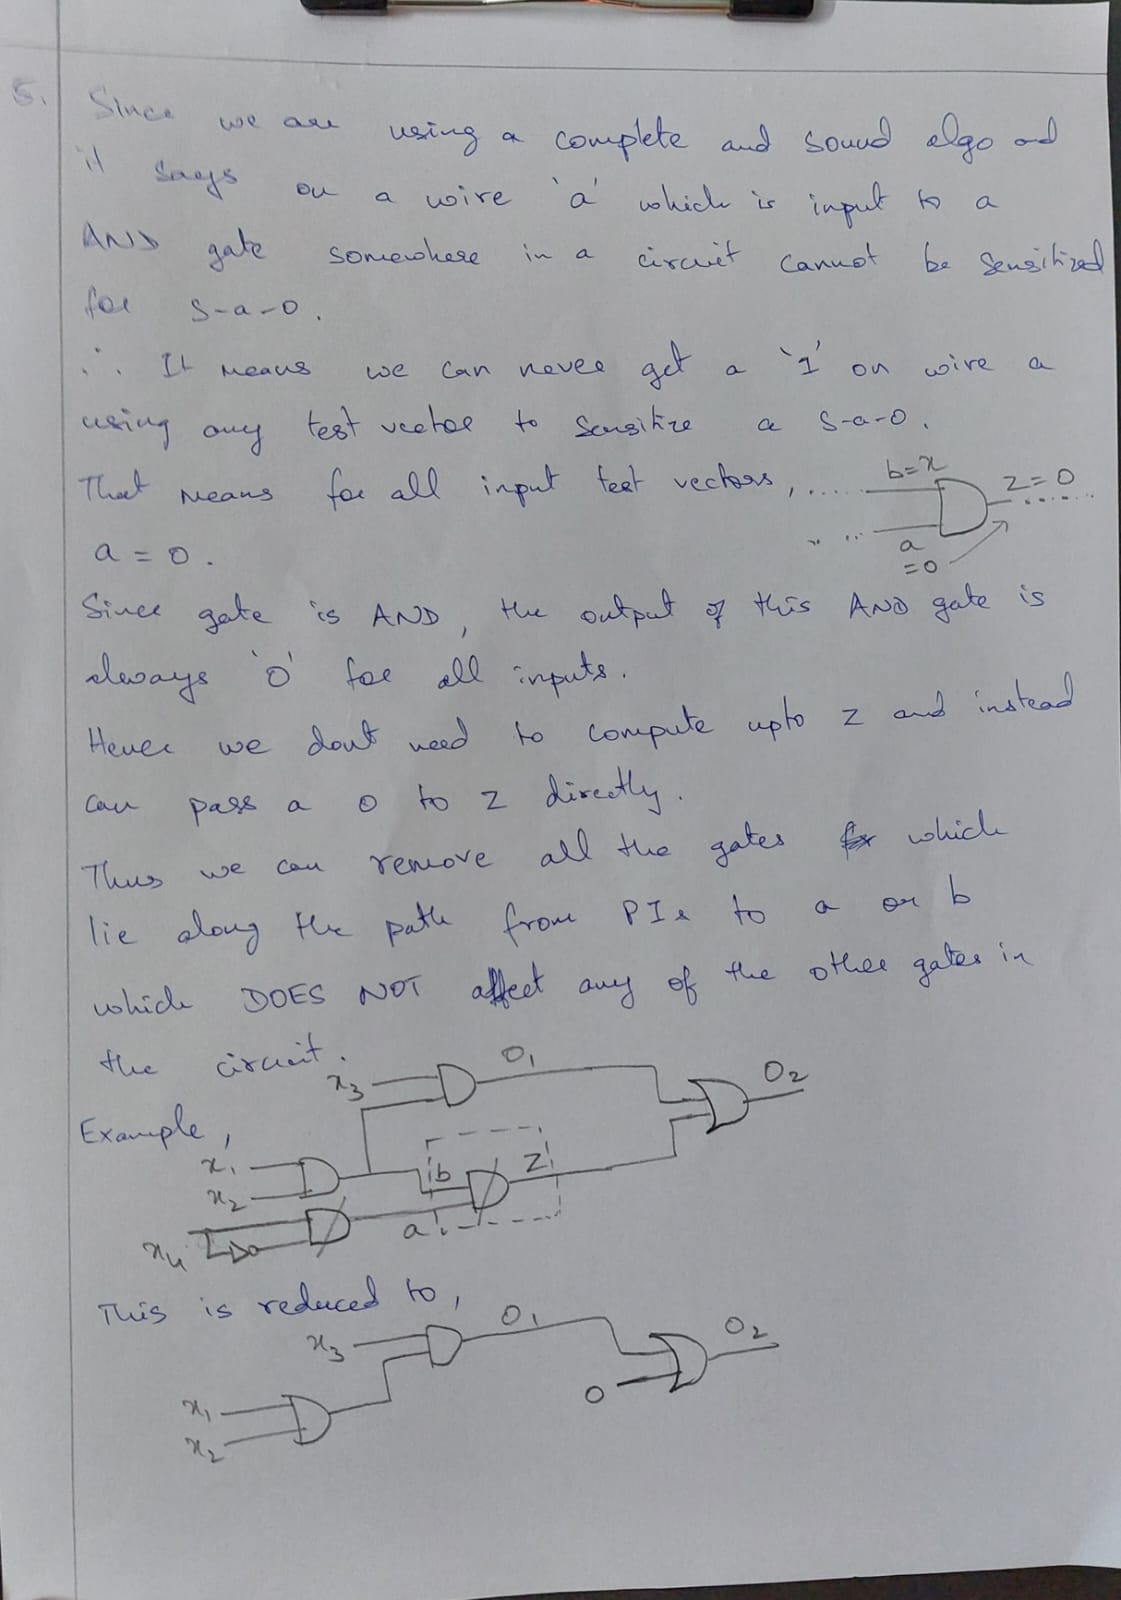 5. Since we are using a complete and sound algo and
it says on a wire 'a' which is input to a
AND gate somewhere in a circuit cannot be sensitized
for s-a-0.
∴ It means we can never get a '1' on wire a
using any test vector to sensitize a s-a-0.
That means for all input test vectors,
b=x
z=0
a = 0.
a
=0
Since gate is AND, the output of this AND gate is
always '0' for all inputs.
Hence we dont need to compute upto z and instead
can pass a 0 to z directly.
Thus we can remove all the gates which
lie along the path from PIs to a or b
which DOES NOT affect any of the other gates in
the circuit.
Example,
x3
O1
O2
x1
x2
b
z
a
x4
This is reduced to,
x3
O1
O2
0
x1
x2